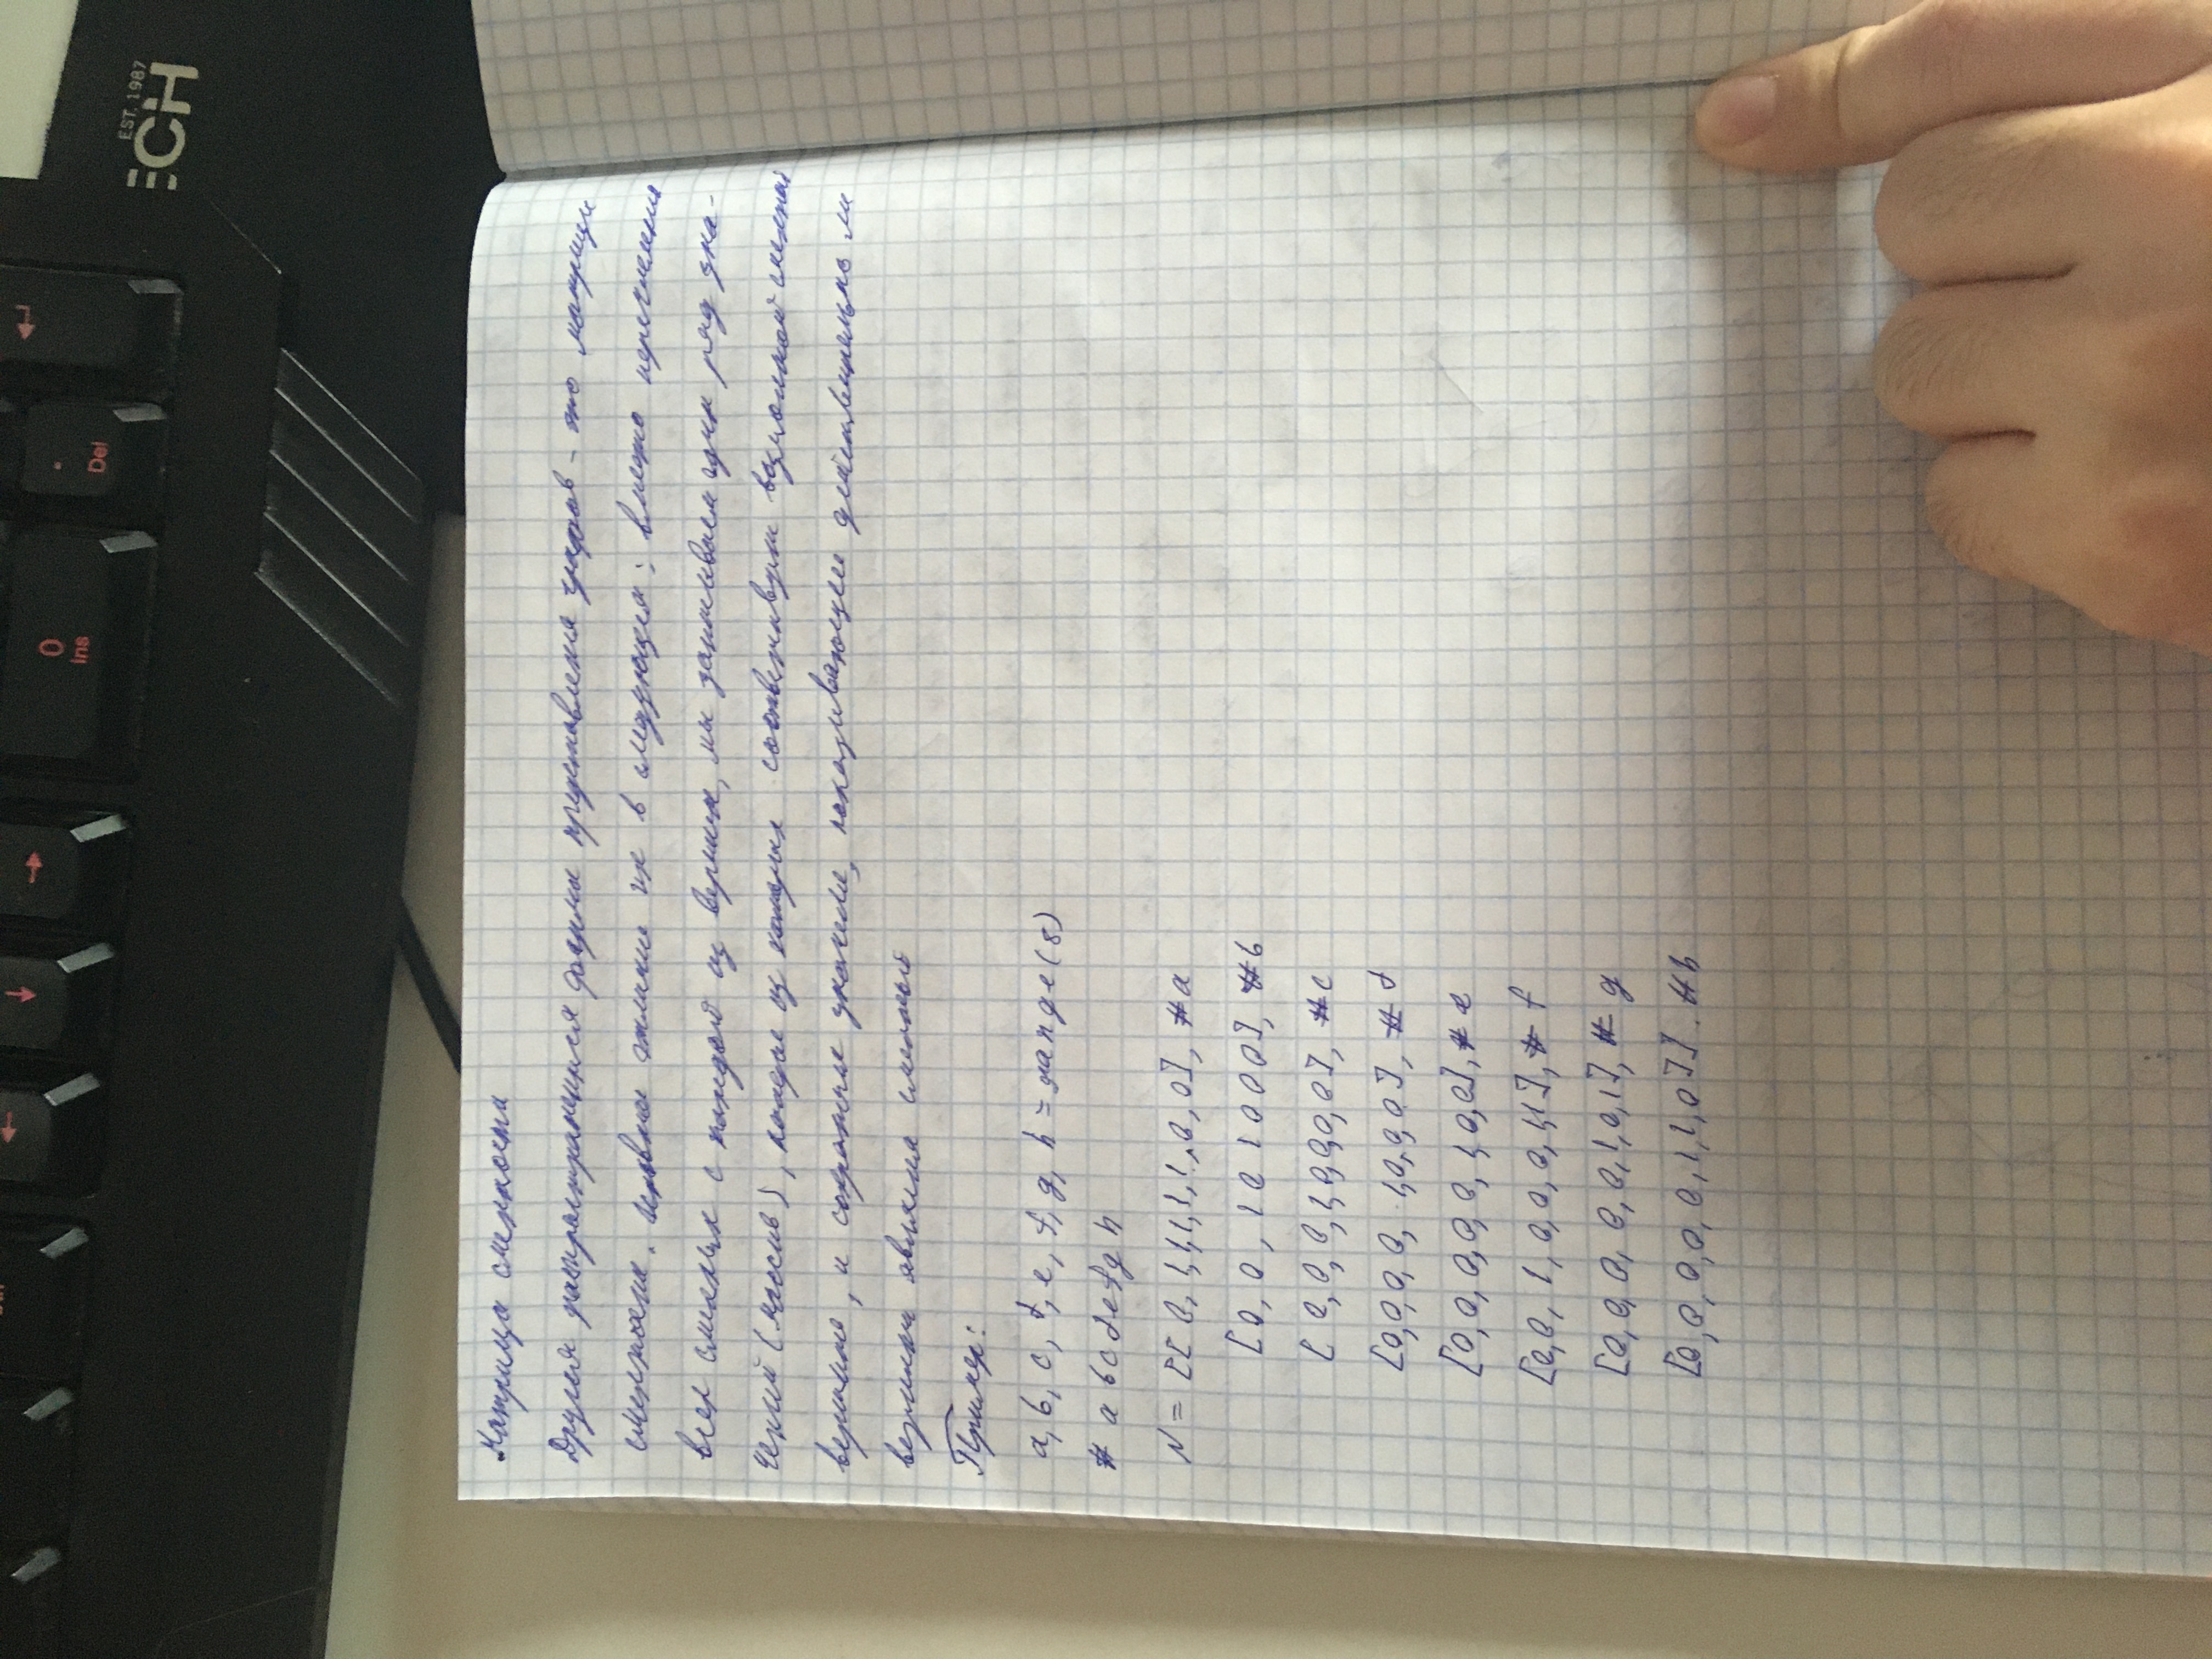 0
Ins
.
Del
EST. 1987
ECH
Матрица смежности
Другая распространенная форма представления графов - это матрицы
смежности. Основное отличие их в следующем: вместо перечисления
всех смежных с каждой из вершин, мы записываем один ряд зна-
чений (массив), каждое из которых соответствует возможной смежной
вершине, и сохраняем значение, показывающее действительно ли
вершина является смежной
Пример:
a, b, c, d, e, f, g, h = range(8)
# a b c d e f g h
N = [[ 0, 1,1,1,1,1,0,0], #a
[0, 0, 1 0 1 0 0 0], #b
[ 0,0,0,1,0,0,0,0], #c
[0,0,0,0, 1,0,0,0], # d
[0,0,0,0,0,1,0,0], # e
[0,0,1,0,0,0,1,1], # f
[0,0,0,0,0,1,0,1], # g
[0,0,0,0,0,1,1,0]]. #h